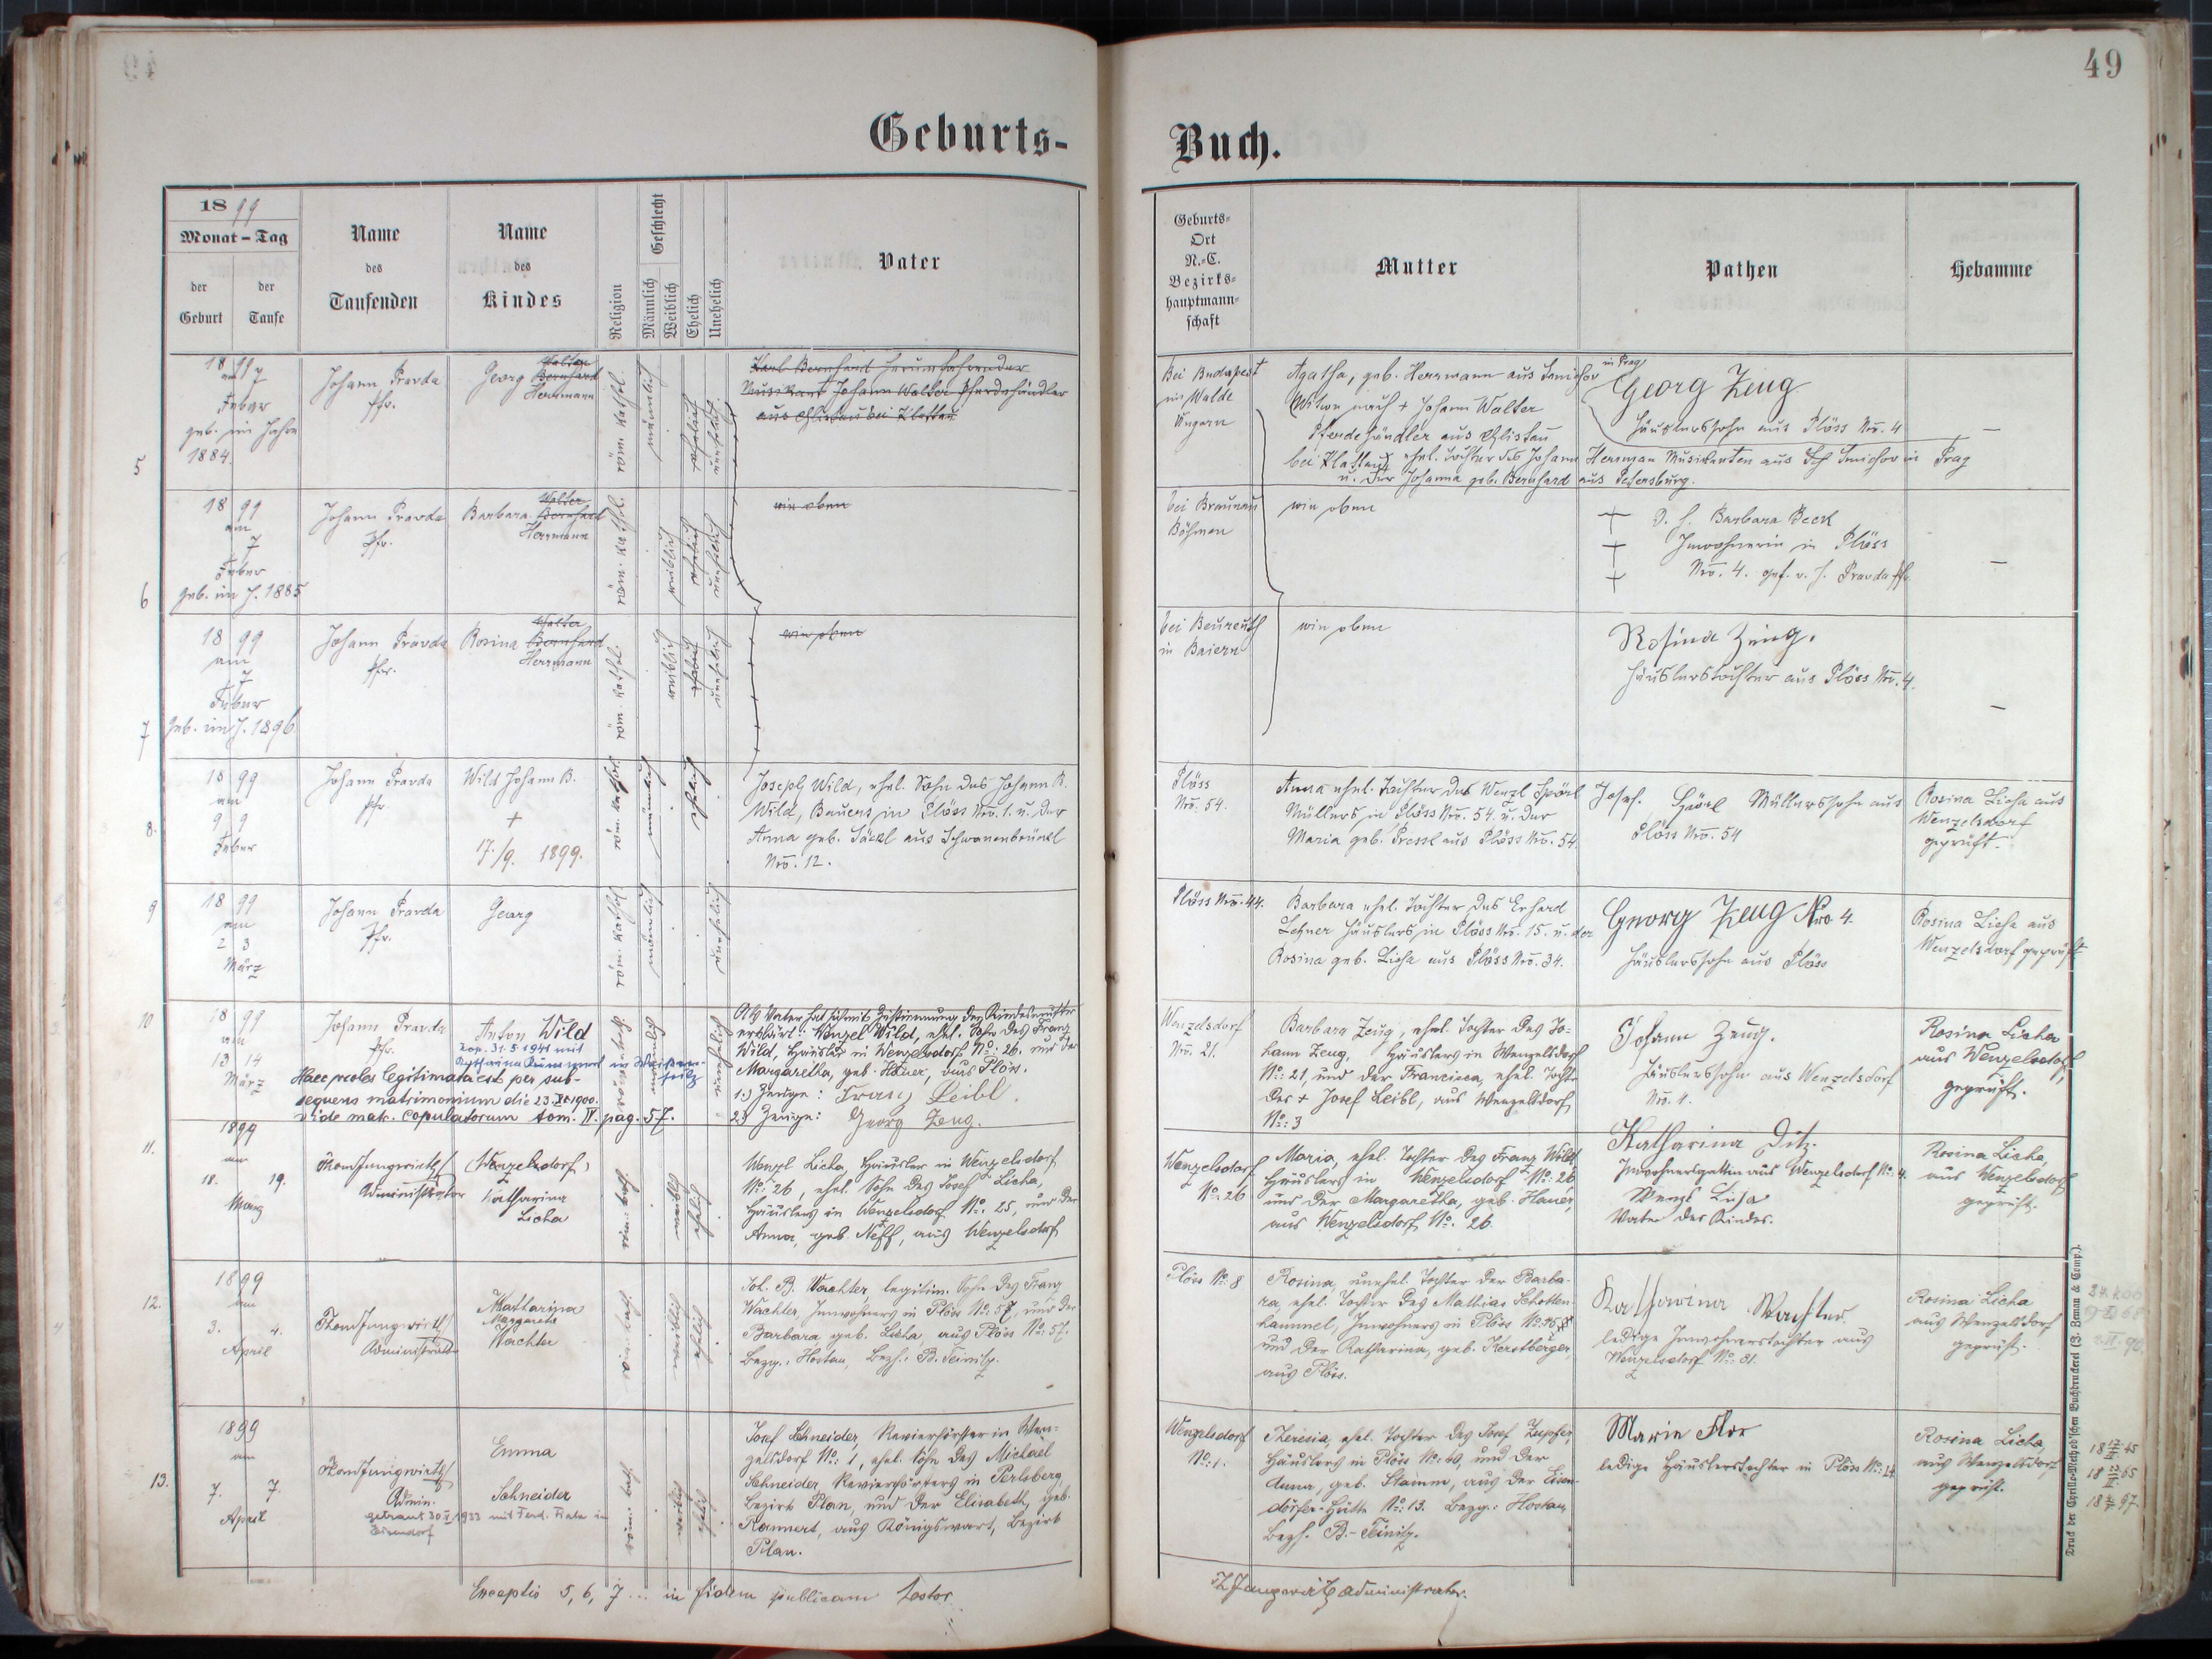 49
Geburts-
Buch.
1899
Monat – Tag
der Geburt
der Taufe
Name des Taufenden
Name des Kindes
Religion
Geschlecht
Männlich
Weiblich
Ehelich
Unehelich
Vater
Geburts-
Ort
N.-C.
Bezirks-
hauptmann-
schaft
Mutter
Pathen
Hebamme
5
1899
am 7
Feber
geb. im Jahre
1884.
Johann Pravda
Pfr.
Walter
Georg Bernhard
Herrmann
röm. kathol.
männlich
ehelich
unehelich
Karl Bernhard herumfahrender
Musikant Johann Walter Pferdehändler
aus Chlistau bei Klattau
Bei Budapest
im Walde
Ungarn
Agatha, geb. Herrmann aus Smichov in Prag
Witwe nach + Johann Walter
Pferdehändler aus Chlistau
bei Klattau, ehel. Tochter des Johann Herrman Musikanten aus Smichov in Prag
u. der Johanna geb. Bernhard aus Petersburg.
Georg Zeug
Häuslerssohn aus Plöss Nro. 4
–
6
1899
am
7
Feber
geb. im J. 1885
Johann Pravda
Pfr.
Walter
Barbara Bernhard
Herrmann
röm. kathol.
weiblich
ehelich
unehelich
wie oben
bei Braunau
Böhmen
wie oben
+ Barbara Beck
+ Inwohnerin in Plöss
+ Nro. 4. gef. v. J. Pravda Pfr.
–
7
1899
am
7
Feber
geb. im J. 1896
Johann Pravda
Pfr.
Walter
Rosina Bernhard
Herrmann
röm. kathol.
weiblich
ehelich
unehelich
wie oben
bei Beureuth
in Baiern
wie oben
Rosina Zeug.
Häuslerstochter aus Plöss Nro. 4.
–
8.
1899
am
9 9
Feber
Johann Pravda
Pfr.
Wild Johann B.
+
17./9. 1899.
röm. kathol.
männlich
ehelich
Joseph Wild, ehel. Sohn des Johann B.
Wild, Bauers in Plöss Nro. 1. u. der
Anna geb. Säckl aus Schwanenbrückl
Nro. 12.
Plöss
Nro. 54.
Anna ehel. Tochter des Wenzl Spörl
Müllers in Plöss Nro. 54. u. der
Maria geb. Pressl aus Plöss Nro. 54.
Josef. Spörl Müllerssohn aus
Plöss Nro. 54
Rosina Licha aus
Wenzelsdorf
geprüft.
9
1899
am
2 3
März
Johann Pravda
Pfr.
Georg
röm. kathol.
männlich
unehelich
Plöss Nro. 44.
Barbara ehel. Tochter des Erhard
Lehner Häuslers in Plöss Nro. 15. u. der
Rosina geb. Licha aus Plöss Nro. 34.
Georg Zeug Nro 4.
Häuslerssohn aus Plöss
Rosina Licha aus
Wenzelsdorf geprüft
10
1899
am
13 14
März
Johann Pravda
Pfr.
Anton Wild
cop. 31.5.1941 mit
Haec proles legitimata est per sub-
sequens matrimonium die 23. 1900.
vide matr. copulatorum tom. II. pag. 57.
männlich
unehelich
Als Vater hat sich mit Zustimmung der Kindesmutter
erklärt: Wenzel Wild, ehel. Sohn des Franz
Wild, Häusler in Wenzelsdorf No: 26. und der
Margaretha, geb. Hauer, aus Plöss.
1.) Zeuge: Franz Leibl.
2.) Zeuge: Georg Zeug.
Wenzelsdorf
Nro. 21.
Barbara Zeug, ehel. Tochter des Jo-
hann Zeug, Häuslers in Wenzelsdorf
No: 21, und der Francisca, ehel. Tocht.
des + Josef Leibl, aus Wenzelsdorf
No: 3
Johann Zeug.
Häuslerssohn aus Wenzelsdorf
Nro. 4.
Rosina Licha
aus Wenzelsdorf,
geprüft.
11.
1899
am
18. 19.
März
Jungwirth
Administrator
(Wenzelsdorf)
Katharina
Licha
röm. kath.
weiblich
ehelich
Wenzl Licha, Häusler in Wenzelsdorf
No: 26, ehel. Sohn des Josef Licha,
Häuslers in Wenzelsdorf No: 25, und der
Anna, geb. Neff, aus Wenzelsdorf
Wenzelsdorf
No: 26
Maria, ehel. Tochter des Franz Wild,
Häuslers in Wenzelsdorf No: 26
und der Margaretha, geb. Hauer,
aus Wenzelsdorf No: 26.
Katharina Ditz.
Inwohnersgattin aus Wenzelsdorf No: 4.
Wenzl Licha
Vater des Kindes.
Rosina Licha,
aus Wenzelsdorf
geprüft.
12.
1899
am
3. 4.
April
Jungwirth
Administrator
Katharina
Margareta
Wachter
röm. kath.
weiblich
ehelich
Joh. B. Wachter, legitim. Sohn des Franz
Wachter, Inwohners in Plöss No: 57, und der
Barbara, geb. Licha, aus Plöss No: 57.
Bezg.: Hostau, Bezh.: B. Teinitz.
Plöss No: 8
Rosina, unehel. Tochter der Barba-
ra, ehel. Tochter des Mathias Schotten-
hammel, Inwohners in Plöss
und der Katharina, geb. Kerstberger,
aus Plöss.
Katharina Wachter
ledige Inwohnerstochter aus
Wenzelsdorf No: 31.
Rosina Licha
aus Wenzelsdorf
geprüft.
13.
1899
am
7. 7.
April
Jungwirth
Admin.
Emma
Schneider
getraut 30 1933 mit Ferd. Fiala in
Eisendorf
röm. kath.
weiblich
ehelich
Josef Schneider, Revierförster in Wen-
zelsdorf No: 1, ehel. Sohn des Michael
Schneider, Revierförsters in Perlsberg,
Bezirk Plan, und der Elisabeth, geb.
Rannert, aus Königswart, Bezirk
Plan.
Wenzelsdorf
No: 1.
Theresia, ehel. Tochter des Josef
Häuslers in Plöss No: 60, und der
Anna, geb. Stamm, aus der Eisen-
dorfer-Hütte No: 13. Bezg.: Hostau,
Bezh. B.-Teinitz.
Marie Flor
ledige Häuslerstochter in Plöss No: 14
Rosina Licha,
aus Wenzelsdorf
geprüft.
Exceptis 5, 6, 7 ... in fidem publicam Testor
Jungwirth Administrator.
Druck der Cyrillo-Method'schen Buchdruckerei (J. Zeman & Comp.).